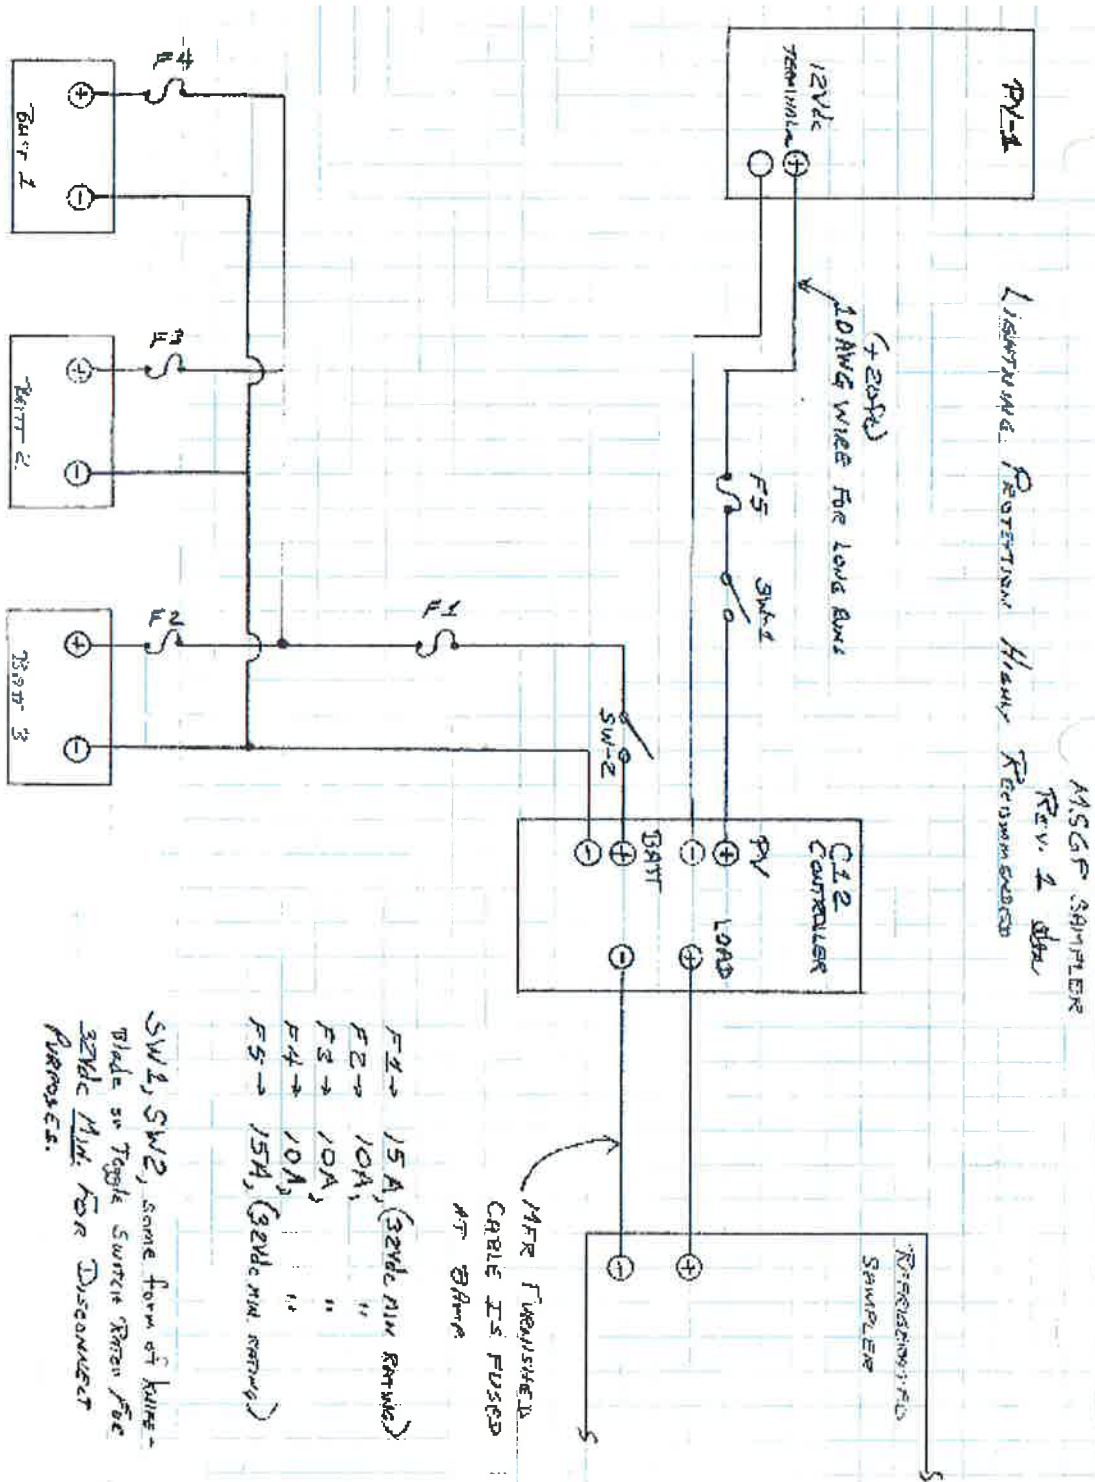 MSGP SAMPLER
Rev. 1
LIGHTNING PROTECTION HIGHLY RECOMMENDED
PV-1
12Vdc
TERMINALS
+
(+20ft)
10AWG WIRE FOR LONG RUNS
F5
SW-1
C12
CONTROLLER
PV
LOAD
+
-
BATT
+
-
+
-
REFRIGERATED
SAMPLER
+
-
MFR FURNISHED
CABLE IS FUSED
AT 8Amp
F4
F3
F2
F1
SW-2
BATT 1
+
-
BATT-2
+
-
BATT 3
+
-
F1→ 15A, (32Vdc MIN RATING)
F2→ 10A, "
F3→ 10A, "
F4→ 10A, "
F5→ 15A, (32Vdc MIN. RATING)
SW1, SW2, some form of KNIFE-
Blade or Toggle Switch Rated For
32Vdc Min. For DISCONNECT
PURPOSES.
S
S